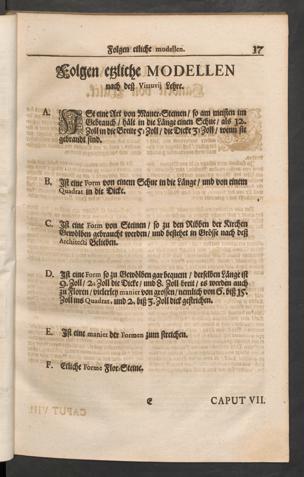 Folgen etliche modellen. 17
Folgen etzliche MODELLEN
nach deß Vitruvij Lehre.
A. ISt eine Art von Mauer-Steinen / so am meisten im
Gebrauch / hält in die Länge einen Schue / als 12.
Zoll in die Breite 5½ Zoll / die Dicke 3½ Zoll / wenn sie
gebrandt sind.
B. Ist eine Form von einem Schue in die Länge / und von einem
Quadrat in die Dicke.
C. Ist eine Form von Steinen / so zu den Ribben der Kirchen
Gewölben gebraucht werden / und bestehet in Grösse nach deß
Architecti Belieben.
D. Ist eine Form so zu Gewölben gar bequem / derselben Länge ist
9. Zoll / 2½ Zoll die Dicke / und 8. Zoll breit / es werden auch
zu Floren / vielerley manier von grossen / nemlich von 6. biß 15.
Zoll ins Quadrat, und 2. biß 3. Zoll dick gestrichen.
E. Ist eine manier der Formen zum streichen.
F. Etliche Forme Flor-Steine.
E CAPUT VII.
CAPUT VIII.